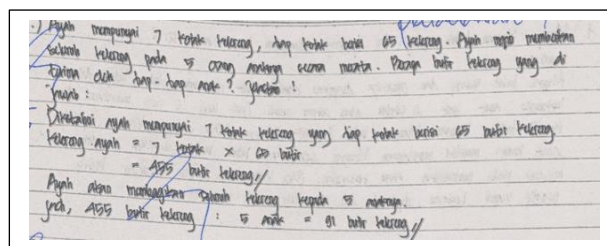 .) Ayah mempunyai 7 kotak kelereng, tiap kotak berisi 65 kelereng. Ayah ingin membagikan
seluruh kelereng pada 5 orang anaknya secara merata. Berapa butir kelereng yang di
terima oleh tiap-tiap anak? Jelaskan!
Jawab:
Diketahui ayah mempunyai 7 kotak kelereng yang tiap kotak berisi 65 butir kelereng
kelereng ayah = 7 kotak × 65 butir
= 455 butir kelereng //
Ayah akan membagikan seluruh kelereng kepada 5 anaknya.
jadi, 455 butir kelereng : 5 anak = 91 butir kelereng //